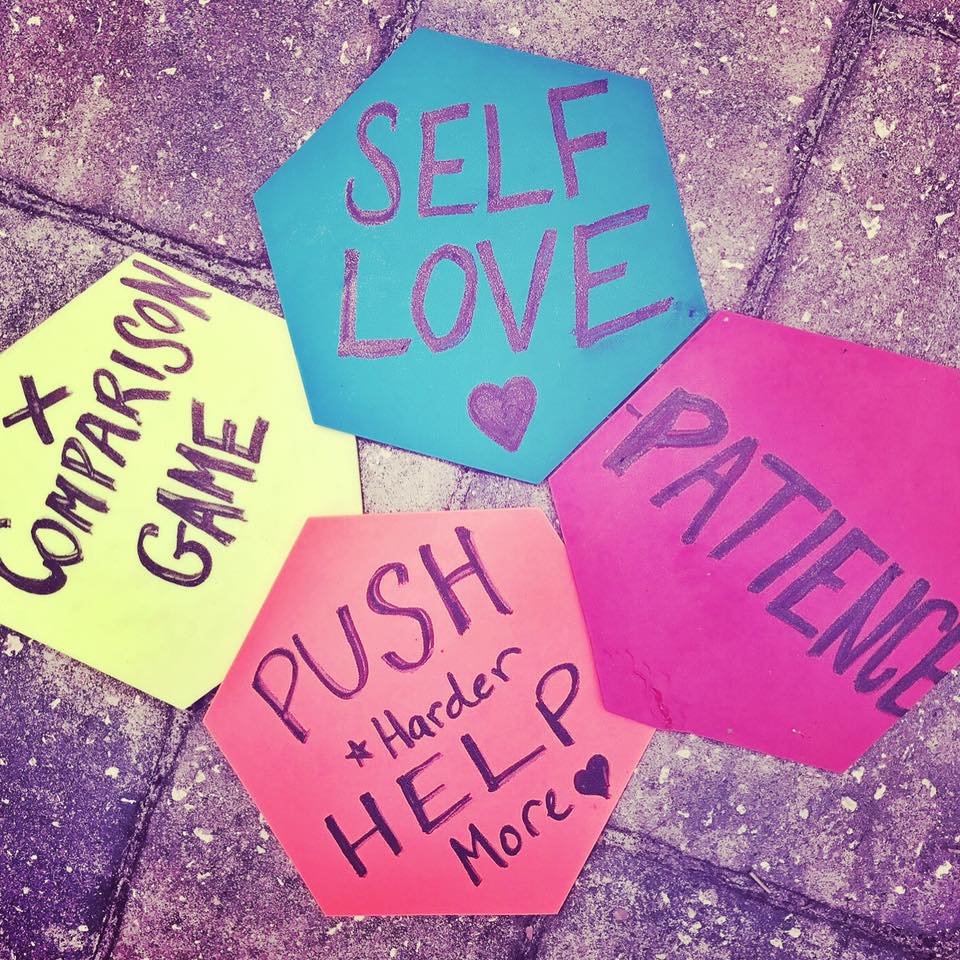 SELF
LOVE
X
COMPARISON
GAME
PATIENCE
PUSH
*Harder
HELP
More